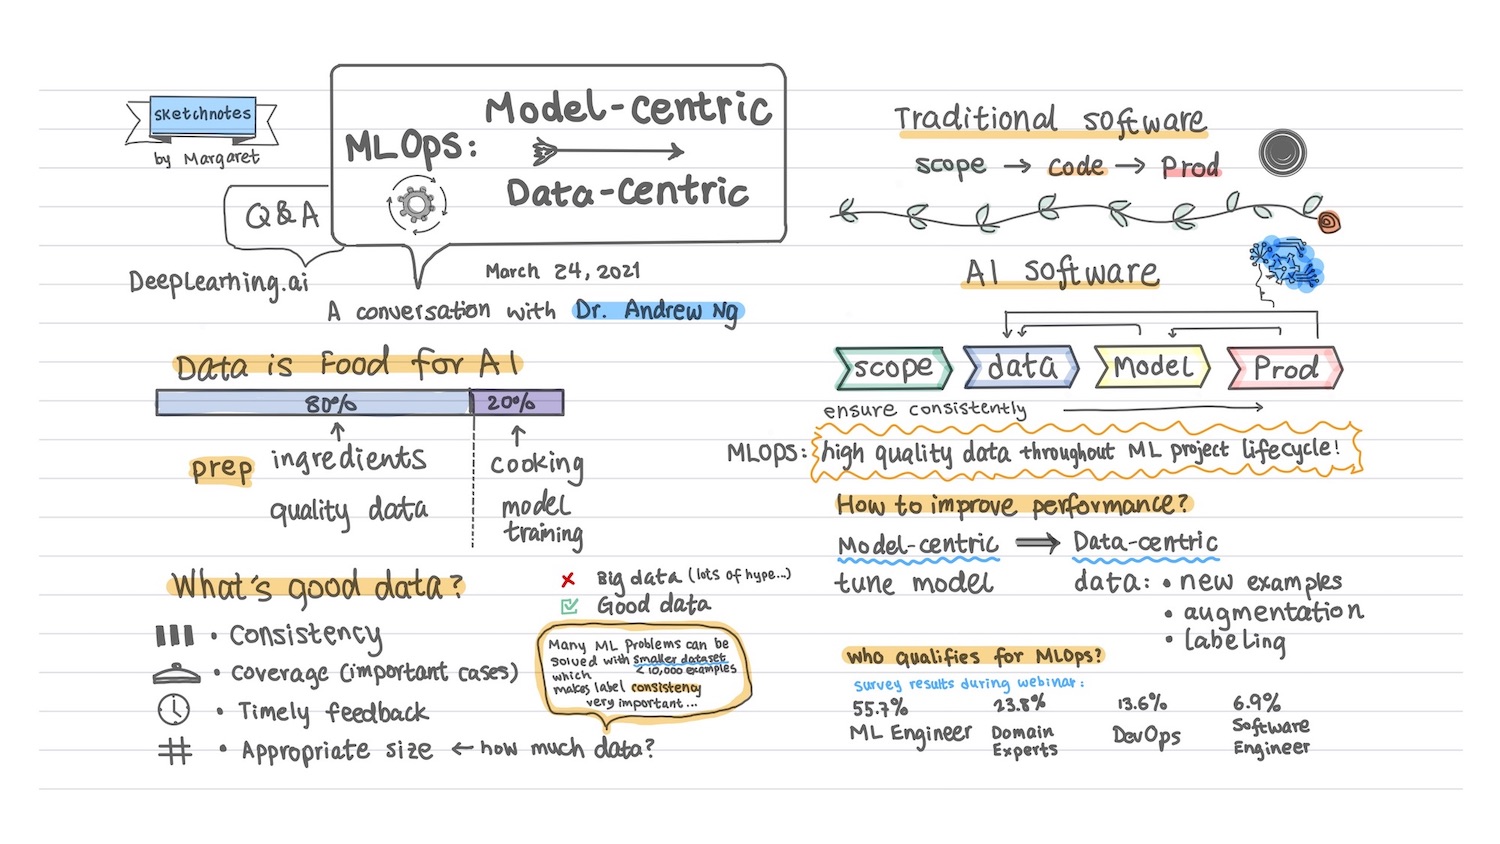 sketchnotes
by Margaret
MLOps:
Model-centric
Data-centric
Q&A
DeepLearning.ai
March 24, 2021
A conversation with Dr. Andrew Ng
Data is Food for AI
80% 20%
prep ingredients
quality data
cooking
model
training
What's good data?
• Consistency
• Coverage (important cases)
• Timely feedback
• Appropriate size ← how much data?
Big data (lots of hype...)
Good data
Many ML Problems can be
solved with smaller dataset
which < 10,000 examples
makes label consistency
very important...
Traditional software
scope → Code → Prod
AI software
scope data Model Prod
ensure consistently
MLOPS: high quality data throughout ML project lifecycle!
How to improve performance?
Model-centric ⇒ Data-centric
tune model
data: • new examples
• augmentation
• labeling
who qualifies for MLOps?
survey results during webinar:
55.7% 23.8% 13.6% 6.9%
ML Engineer
Domain
Experts
DevOps
Software
Engineer